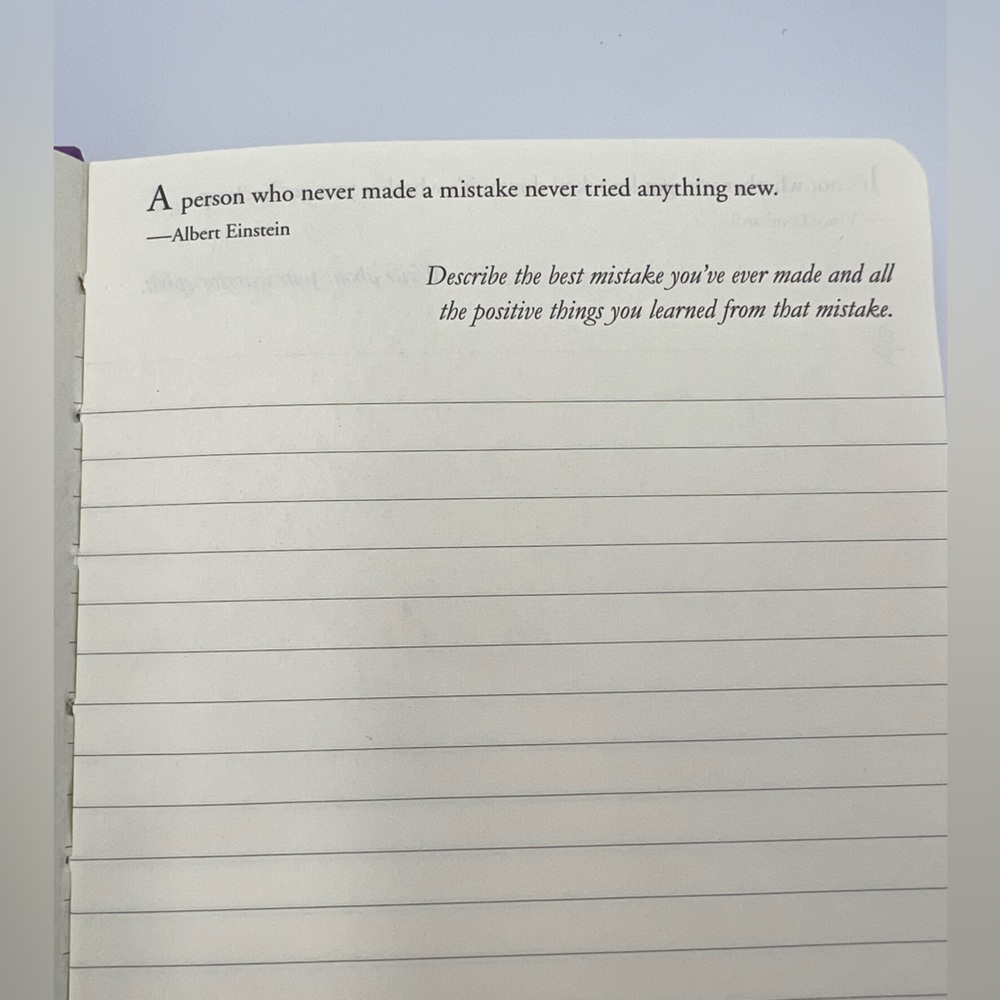 A person who never made a mistake never tried anything new.
—Albert Einstein
Describe the best mistake you've ever made and all
the positive things you learned from that mistake.